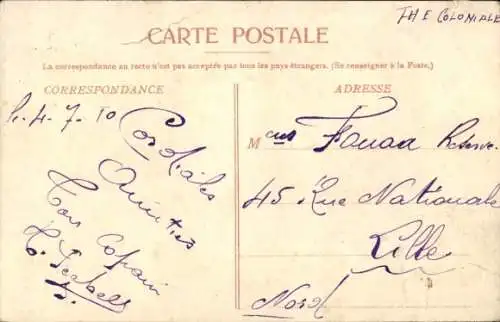 THE COLONIALE
CARTE POSTALE
La correspondance au recto n'est pas acceptée par tous les pays étrangers. (Se renseigner à la Poste.)
CORRESPONDANCE
4-7-10
Cordiales
Amitiés
Ton Copain
ADRESSE
Mcus
45 Rue Nationale
Lille
Nord